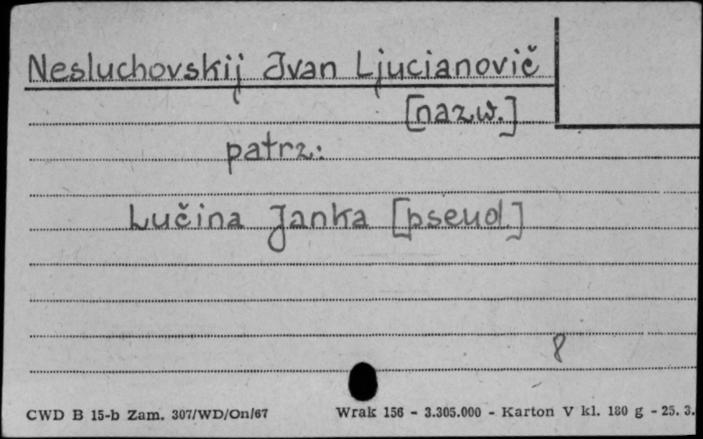 Nesluchovskij Ivan Ljucianovič
[nazw.]
patrz:
Lučina Janka [pseud.]
8
CWD B 15-b Zam. 307/WD/On/67 Wrak 156 - 3.305.000 - Karton V kl. 180 g - 25. 3.